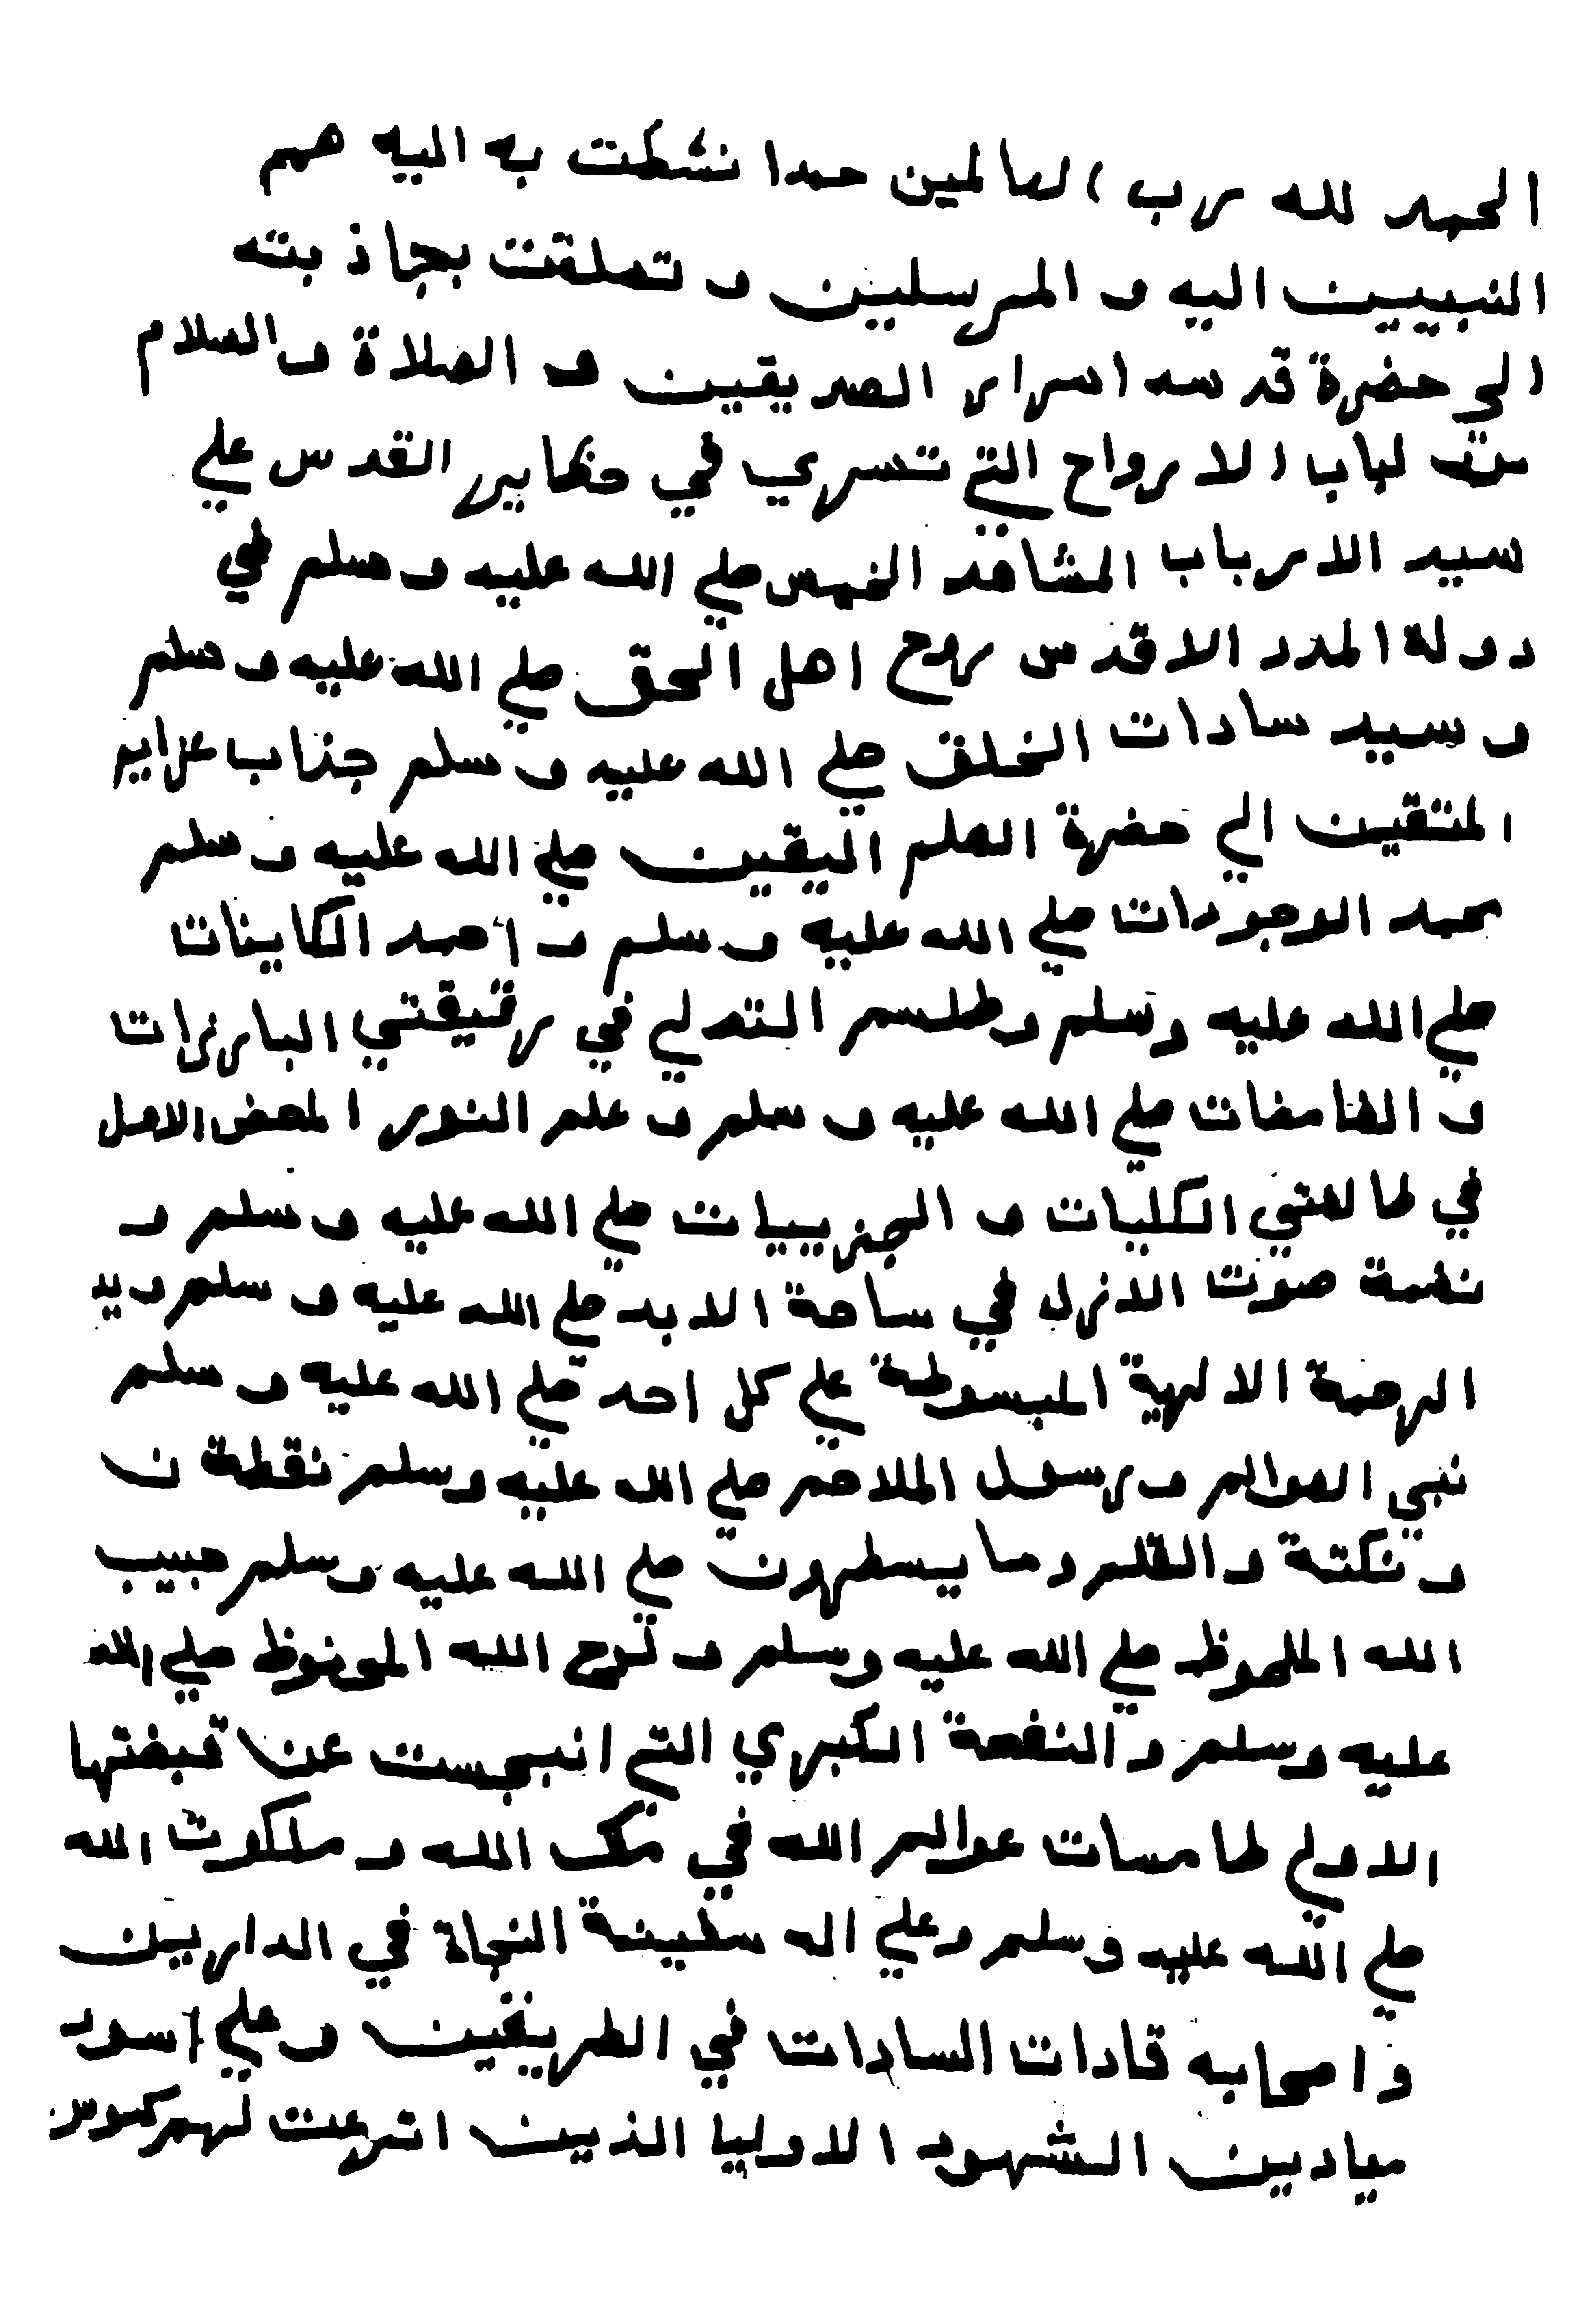 الحمد لله رب العالمين حمدا نشطت به اليه همم
النبيين اليه و المرسلين و تعلقت بجاذبته
الي حضرة قدسه اسرار الصديقين و الصلاة والسلام
من لباب الارواح التي تسري في حظاير القدس علي
سيد الارباب المشاهد الخمس صلي الله عليه و سلم في
دولة المدد الاقدس روح اهل الحق صلي الله عليه و سلم
و سيد سادات الخلق صلي الله عليه و سلم جذاب عزايم
المتقين الي حضرة العلم اليقين صلي الله عليه و سلم
محمد الوجودات صلي الله عليه و سلم و أحمد الكاينات
صلي الله عليه وسلم وطلسم التدلي في رقيقتي البارزات
و الغامضات صلي الله عليه و سلم و علم النور المحض الاصل
في طالعتي الكليات و الجزييات صلي الله عليه و سلم و
نغمة صوت الازل في ساحة الابد صلي الله عليه و سلم ويد
الرحمة الالهية المبسوطة علي كل احد صلي الله عليه و سلم
نبي العوالم و رسول الملاحم صلي الله عليه وسلم نقطة ن
و نكتة والقلم وما يسطرون صلي الله عليه وسلم حبيب
الله الملحوظ صلي الله عليه وسلم و لوح الله المحفوظ صلي الله
عليه وسلم والنفحة الكبري التي انبجست عن قبضتها
الاولي طامسات عوالم الله في ملك الله و ملكوت الله
صلي الله عليه وسلم وعلي اله سفينة النجاة في الدارين
و اصحابه قادات السادات في الطريقين و علي اسود
ميادين الشهود الاوليا الذين اترعت لهم كموس